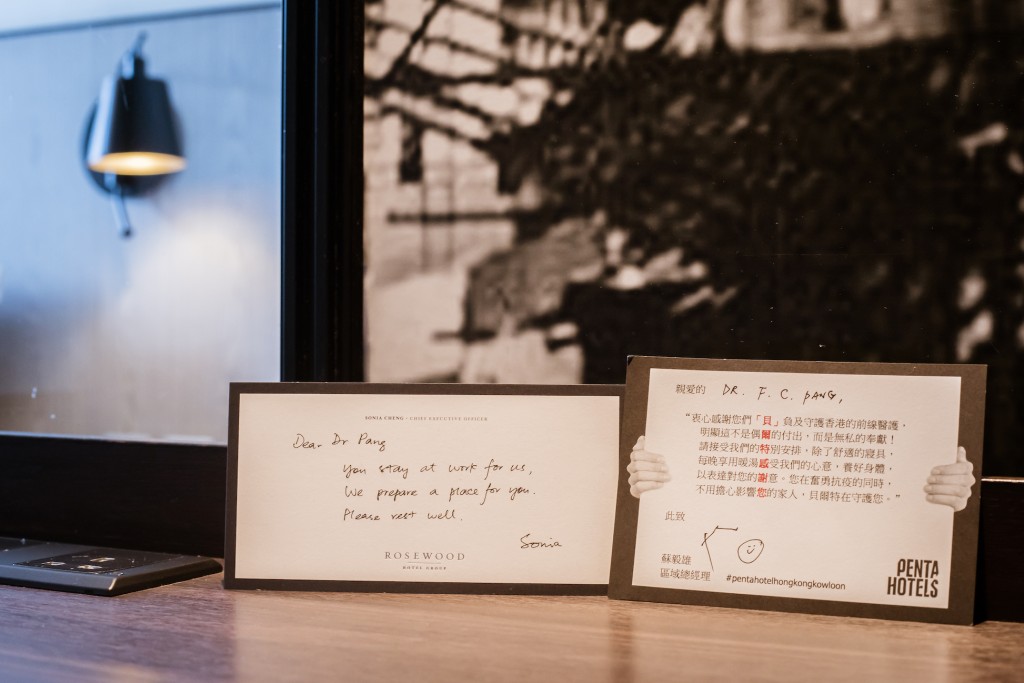 SONIA CHENG · CHIEF EXECUTIVE OFFICER
Dear Dr Pang
You stay at work for us,
We prepare a place for you.
Please rest well.
Sonia
ROSEWOOD
HOTEL GROUP
親愛的 DR. F. C. PANG,
“衷心感謝您們「貝」負及守護香港的前線醫護，
明顯這不是偶爾的付出，而是無私的奉獻！
請接受我們的特別安排，除了舒適的寢具，
每晚享用暖湯感受我們的心意，養好身體，
以表達對您的謝意。您在奮勇抗疫的同時，
不用擔心影響您的家人，貝爾特在守護您。”
此致
蘇毅雄
區域總經理
#pentahotelhongkongkowloon
PENTA
HOTELS